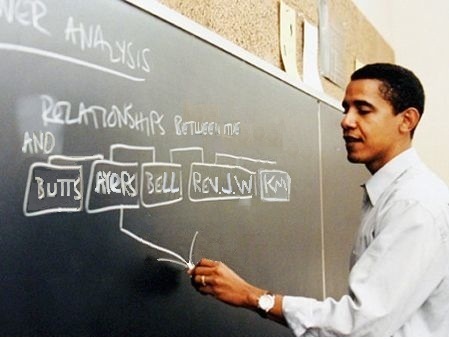 ANALYSIS
RELATIONSHIPS BETWEEN ME
AND
BUTTS AYERS BELL REV.J.W KM